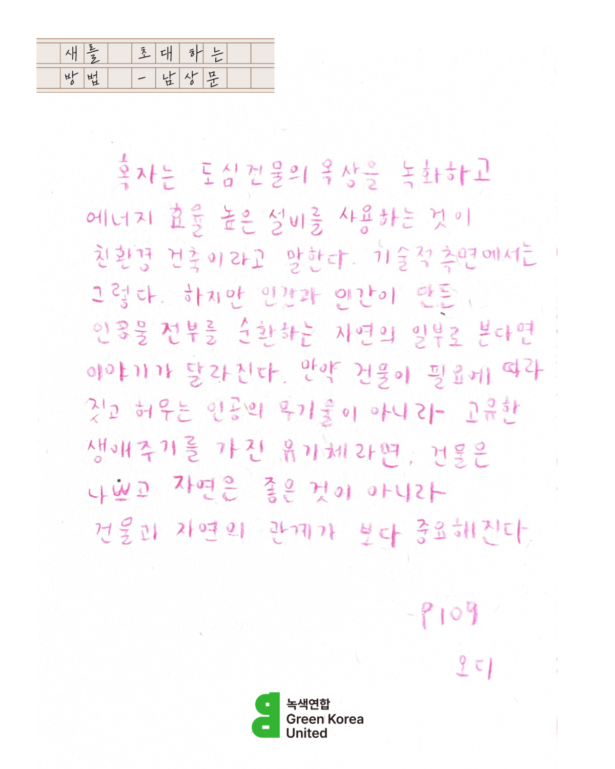 새를 초대하는
방법 - 남상문
혹자는 도심건물의 옥상을 녹화하고
에너지 효율 높은 설비를 사용하는 것이
친환경 건축이라고 말한다. 기술적측면에서는
그렇다. 하지만 인간과 인간이 만든
인공물 전부를 순환하는 자연의 일부로 본다면
이야기가 달라진다. 만약 건물이 필요에 따라
짓고 허무는 인공의 무기물이 아니라 고유한
생애주기를 가진 유기체라면, 건물은
나쁘고 자연은 좋은 것이 아니라
건물과 자연의 관계가 보다 중요해진다
P109
오디
녹색연합
Green Korea
United